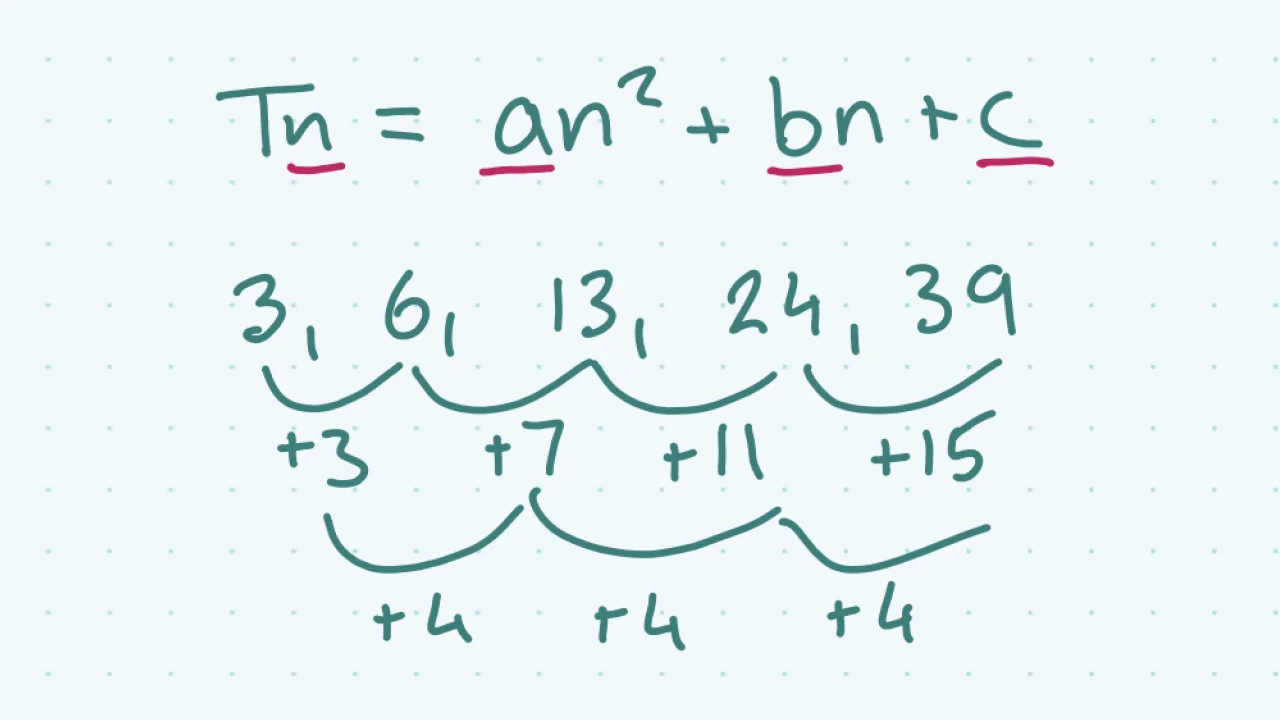 Tn = an² + bn + c
3, 6, 13, 24, 39
+3 +7 +11 +15
+4 +4 +4